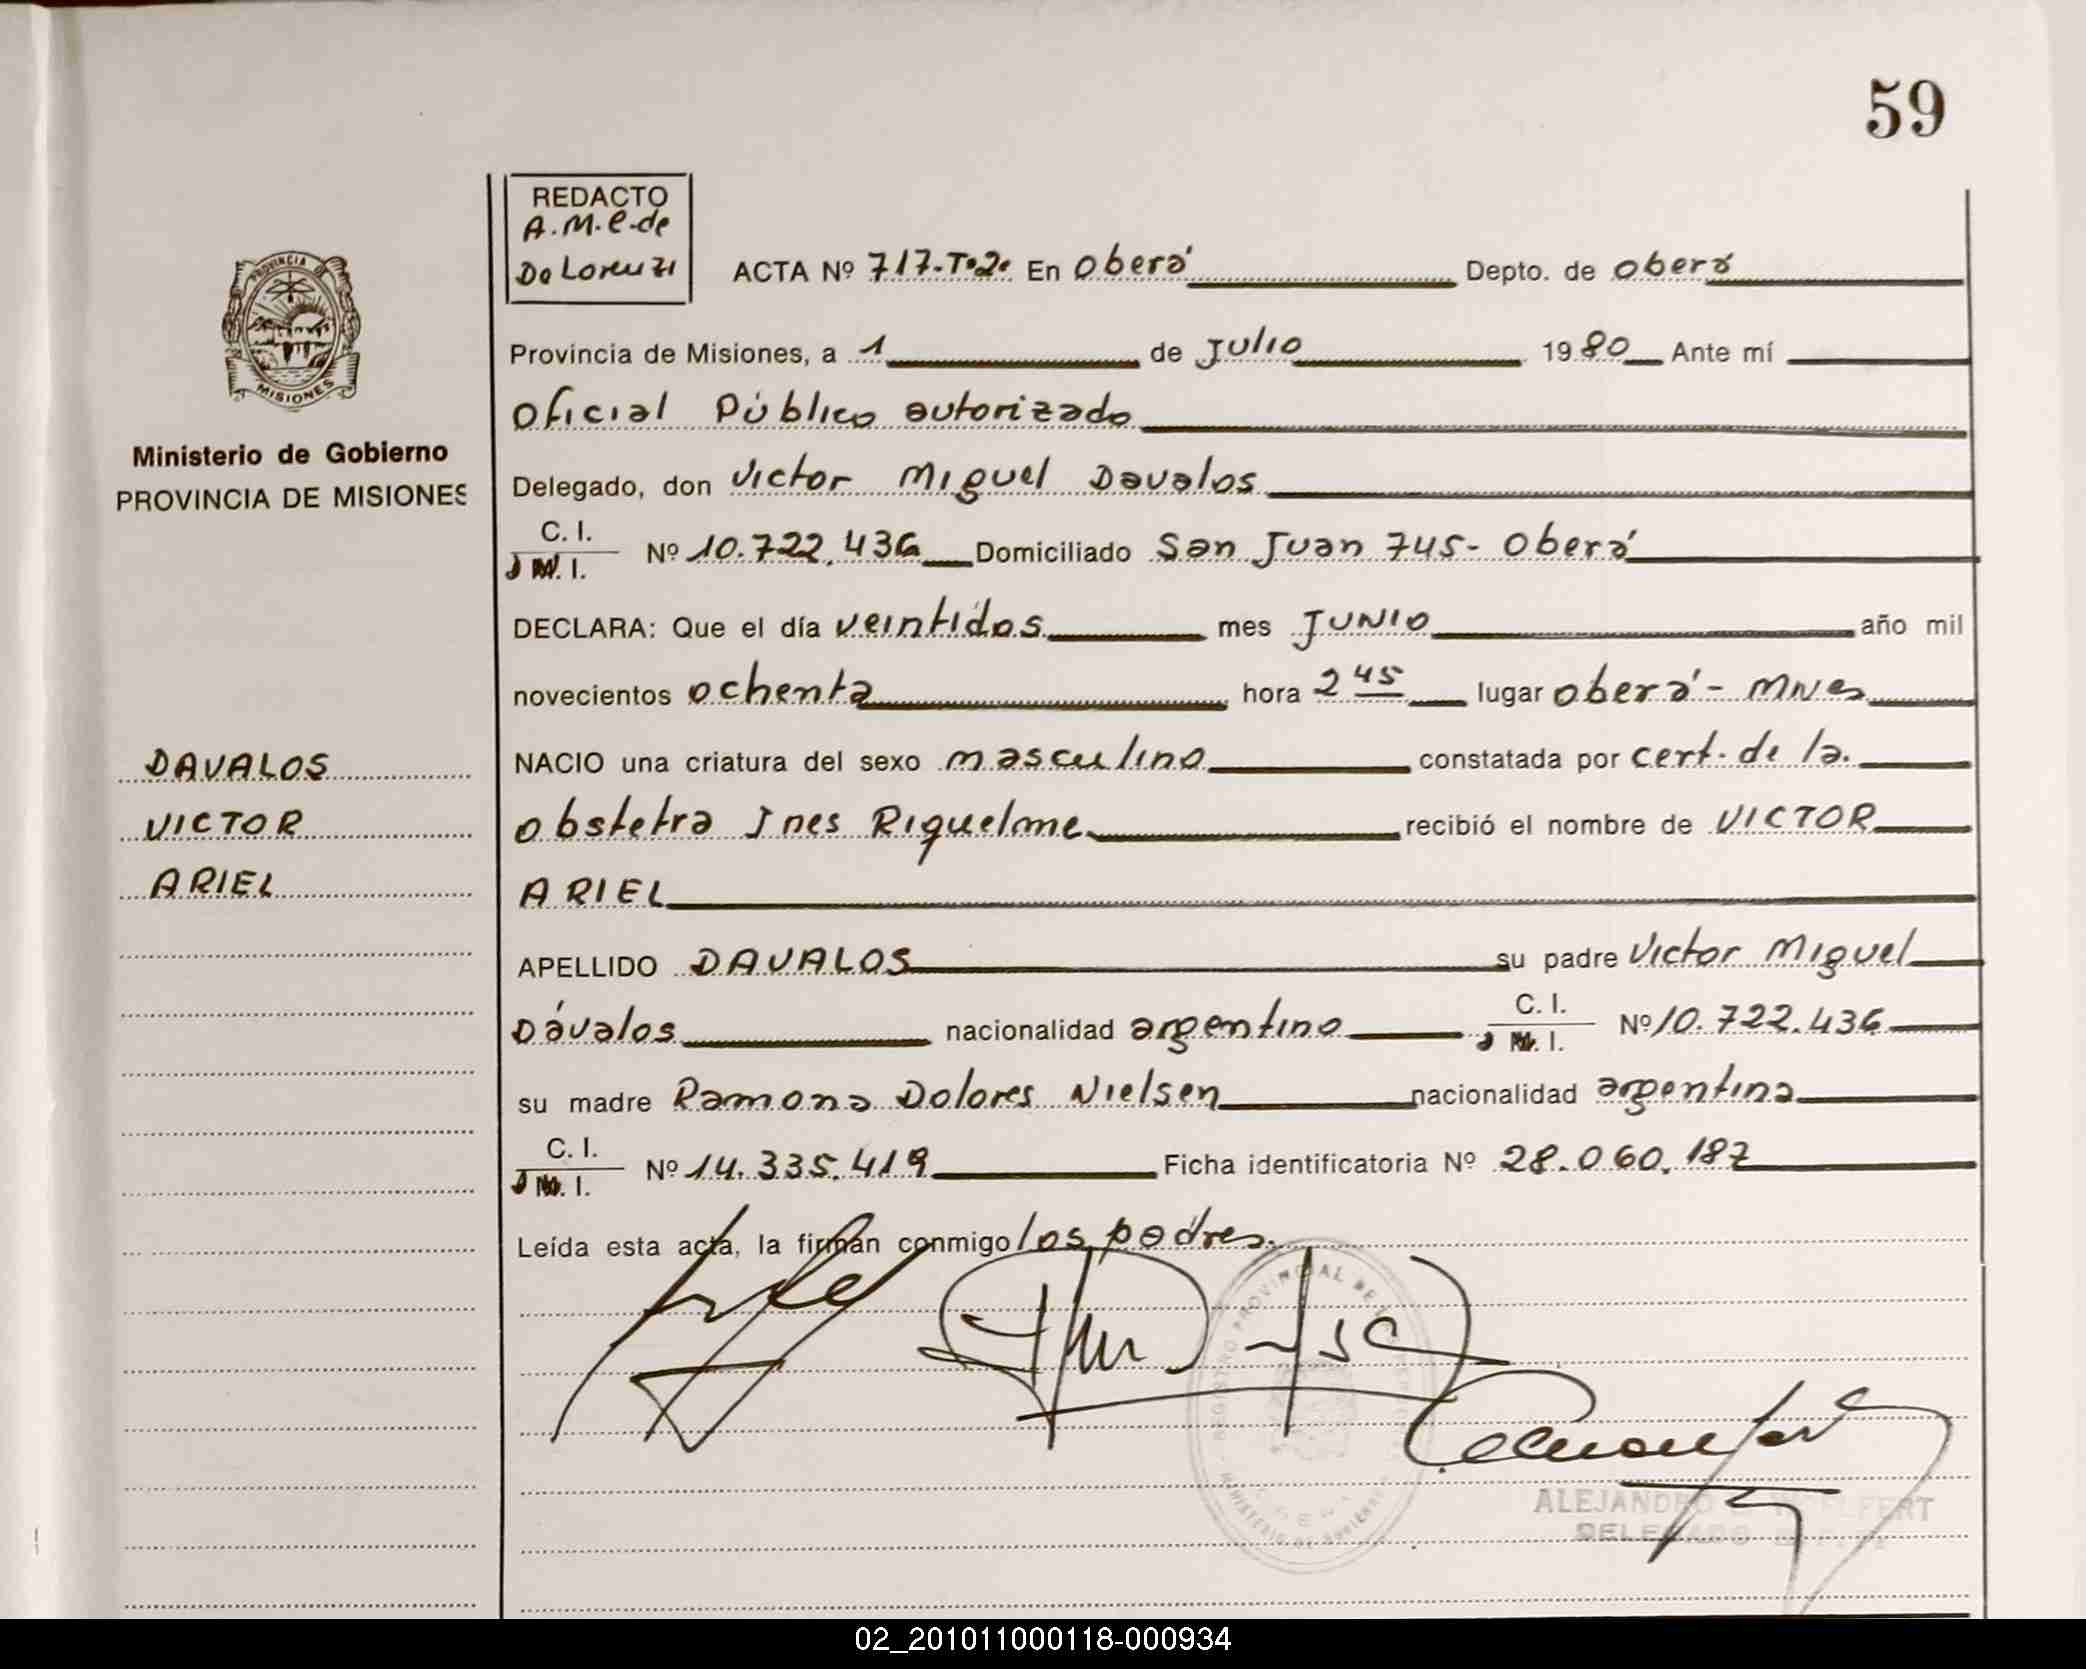 59
REDACTO
A.M.C. de
De Lorenzi
ACTA Nº 717-Tº2º En Oberá Depto. de Oberá
Provincia de Misiones, a 1 de Julio 1980 Ante mí
Oficial Público autorizado
Ministerio de Gobierno
PROVINCIA DE MISIONES
Delegado, don Victor Miguel Davalos
C. I.
D N. I. Nº 10.722.436 Domiciliado San Juan 745- Oberá
DECLARA: Que el día veintidos mes JUNIO año mil
novecientos ochenta hora 2 45 lugar Oberá - Mnes
NACIO una criatura del sexo masculino constatada por cert. de la.
Obstetra Ines Riquelme recibió el nombre de VICTOR
ARIEL
DAVALOS
VICTOR
ARIEL
APELLIDO DAVALOS su padre Victor Miguel
Dávalos nacionalidad argentino C. I.
D N. I. Nº 10.722.436
su madre Ramona Dolores Nielsen nacionalidad argentina
C. I.
D N. I. Nº 14.335.419 Ficha identificatoria Nº 28.060.187
Leída esta acta, la firman conmigo los padres.
REGISTRO PROVINCIAL DE
MINISTERIO DE GOBIERNO
ALEJANDRO
DELEGADO
02_201011000118-000934